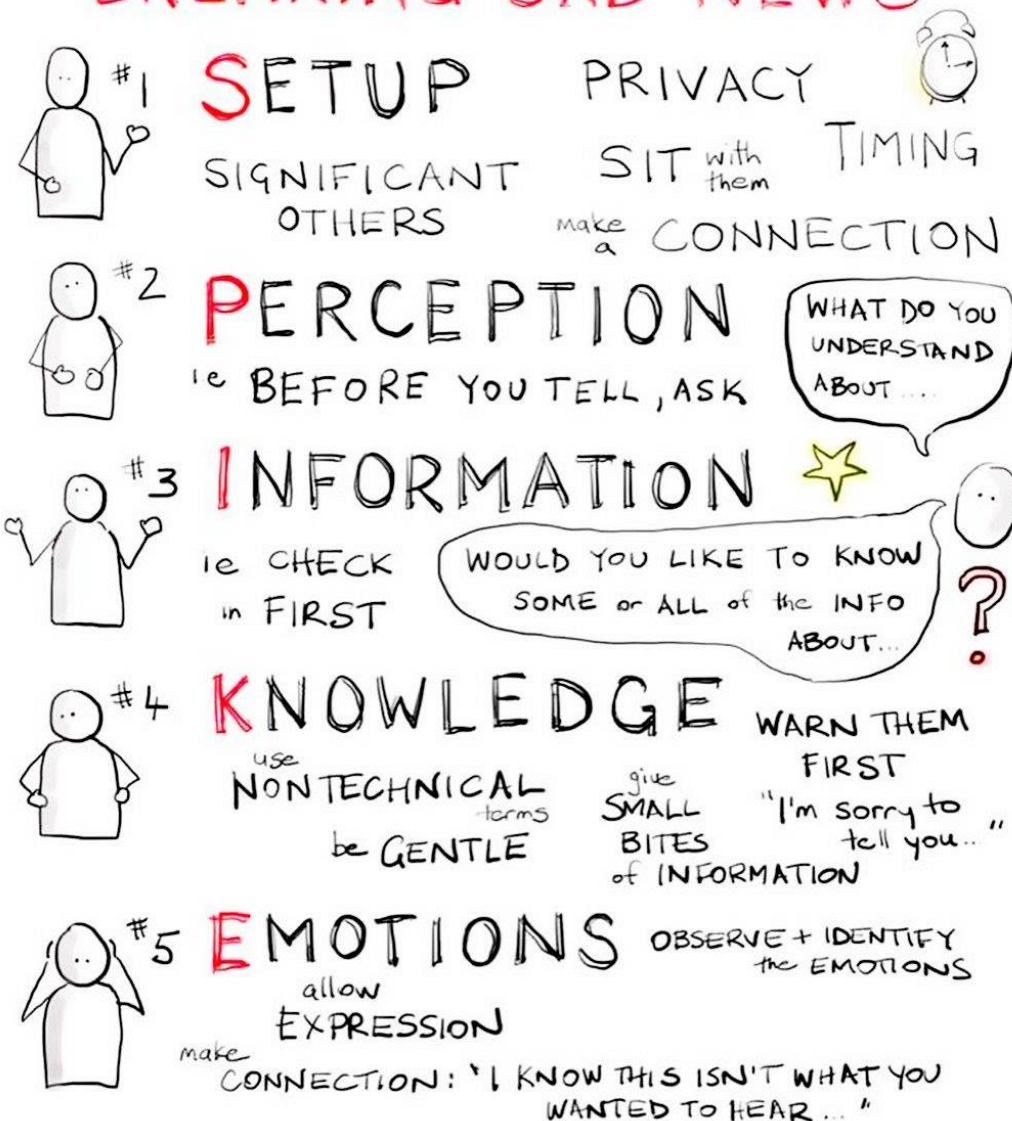 BREAKING BAD NEWS
#1 SETUP
PRIVACY
SIGNIFICANT
OTHERS
SIT with
them
TIMING
make
a CONNECTION
#2 PERCEPTION
ie BEFORE YOU TELL, ASK
WHAT DO YOU
UNDERSTAND
ABOUT....
#3 INFORMATION
ie CHECK
in FIRST
WOULD YOU LIKE TO KNOW
SOME or ALL of the INFO
ABOUT...
?
#4 KNOWLEDGE
use
NONTECHNICAL
terms
be GENTLE
give
SMALL
BITES
of INFORMATION
WARN THEM
FIRST
"I'm sorry to
tell you..."
#5 EMOTIONS
OBSERVE + IDENTIFY
the EMOTIONS
allow
EXPRESSION
make
CONNECTION: "I KNOW THIS ISN'T WHAT YOU
WANTED TO HEAR..."